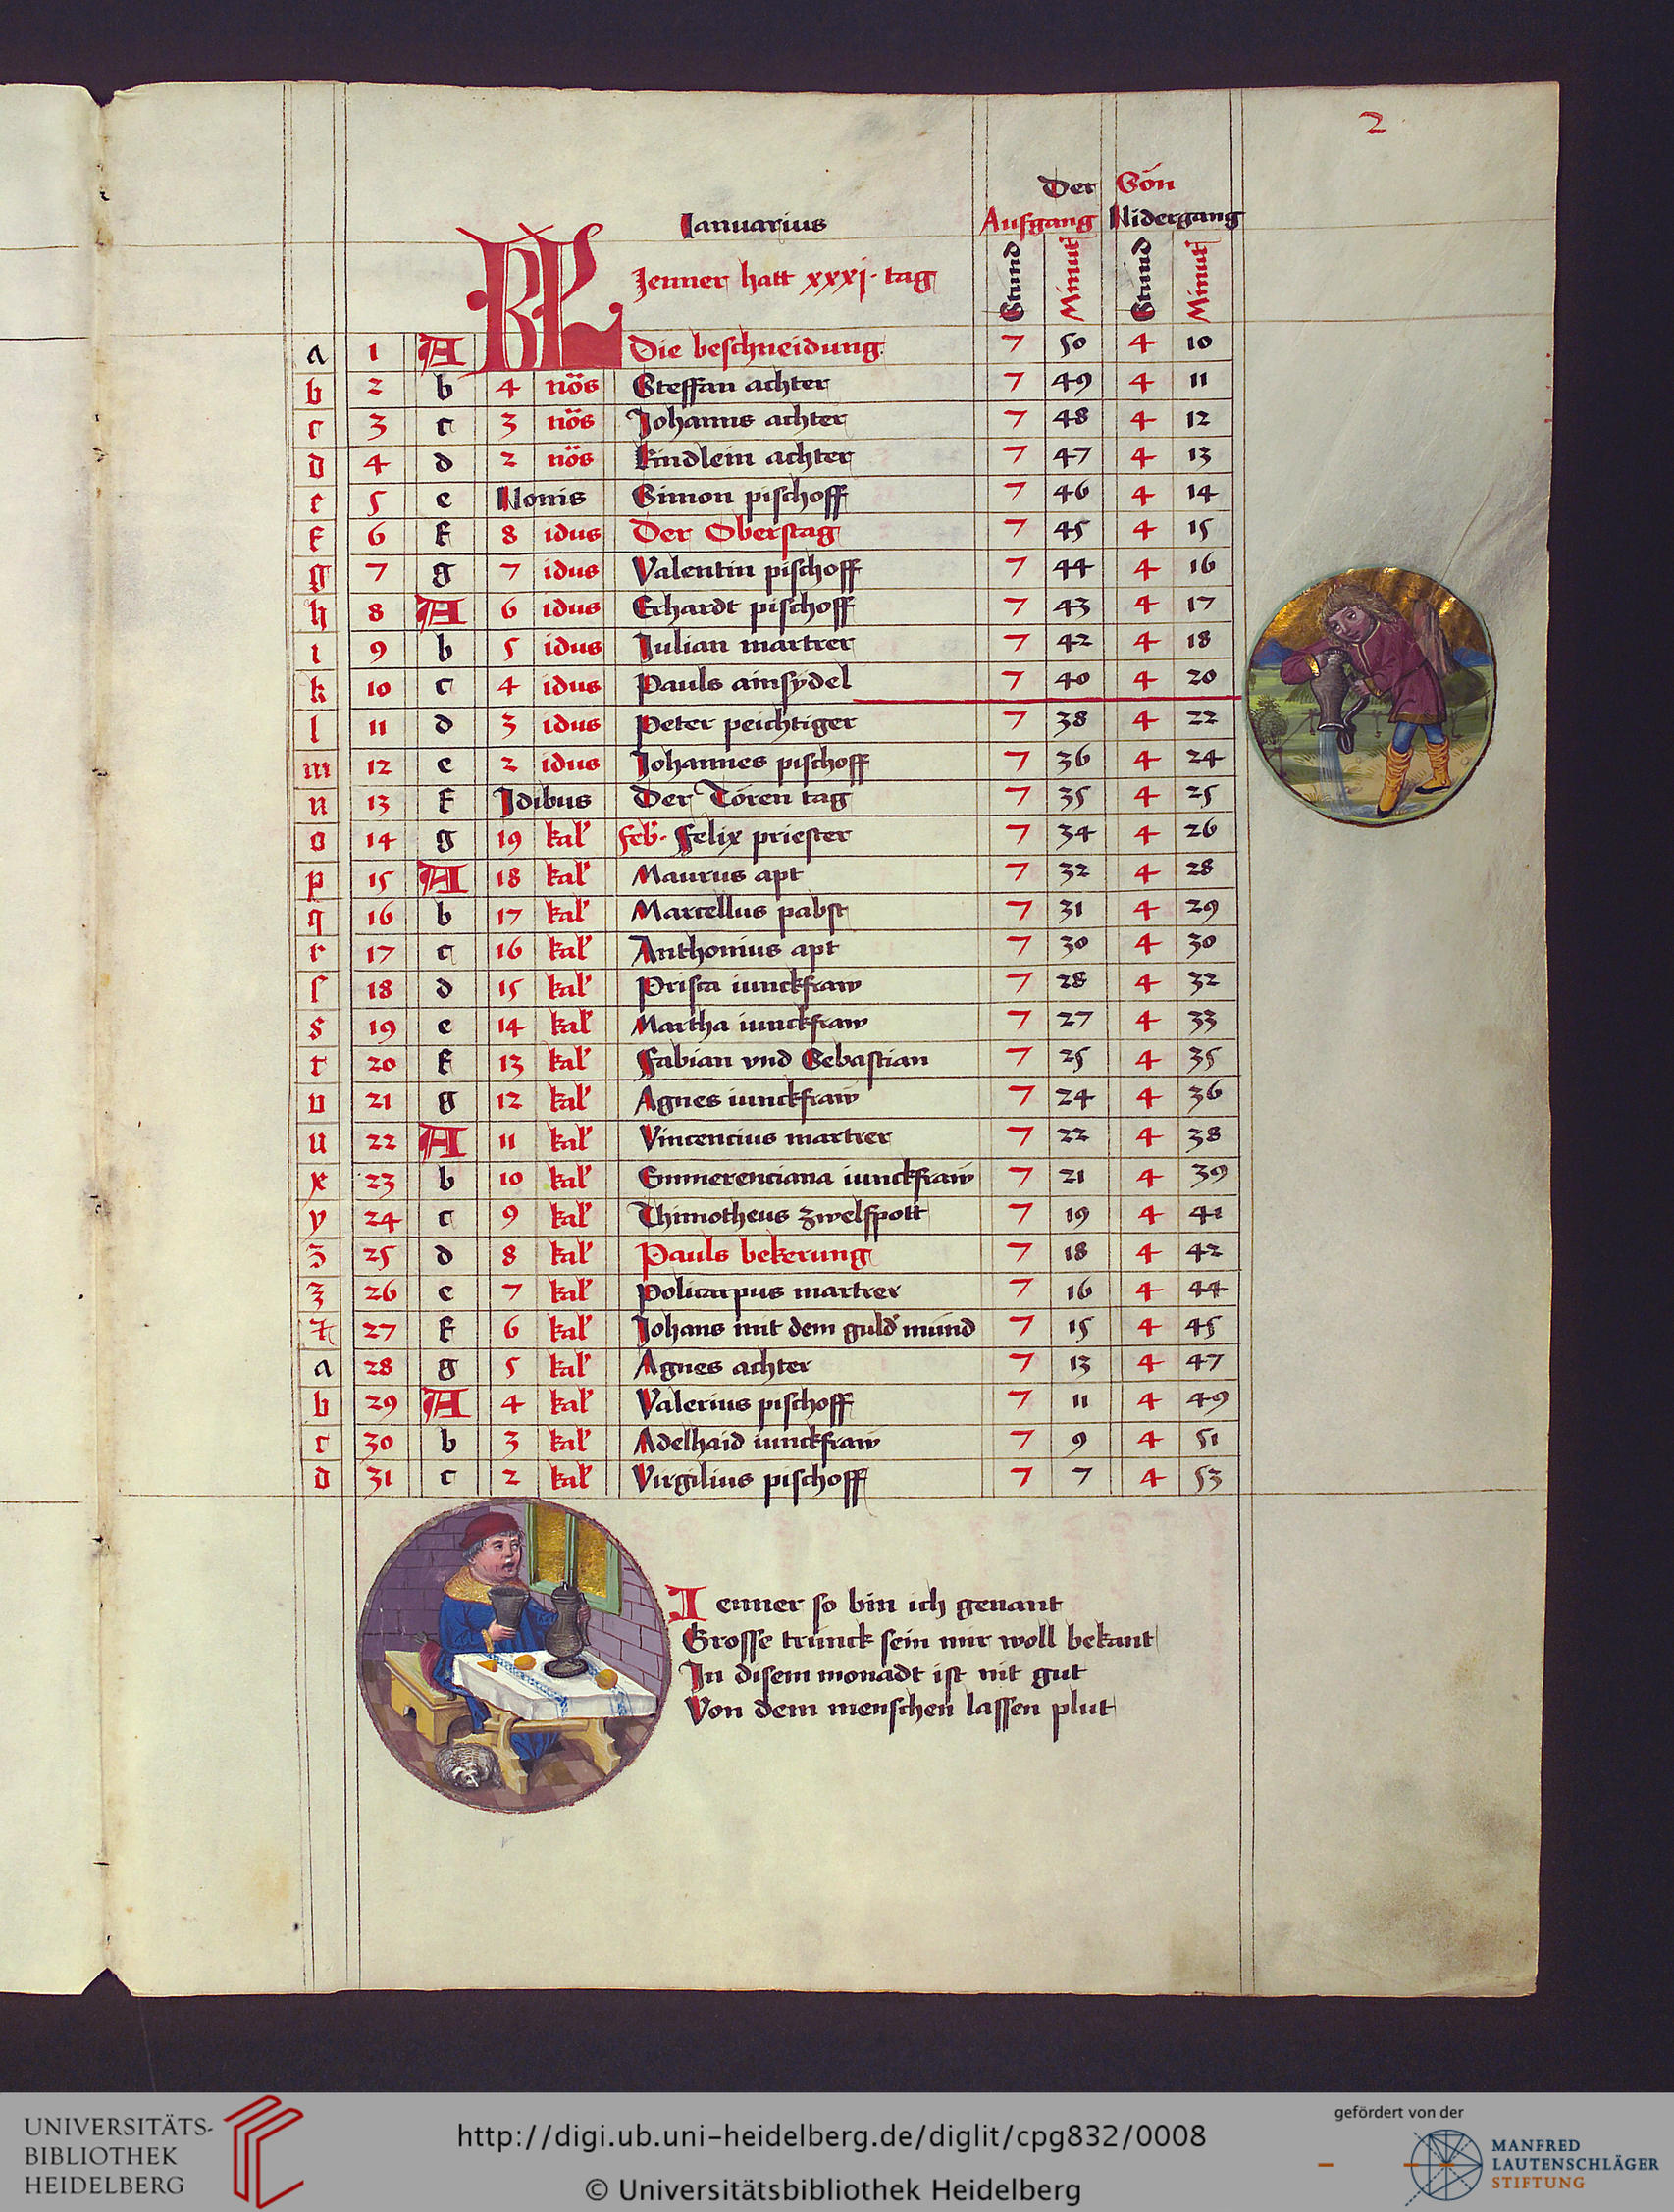 2
Der Son
Ianuarius Aufgang Nidergang
KL Jenner hatt xxxj· tag Stund Minut Stund Minut
a 1 A Die beschneidung 7 50 4 10
b 2 b 4 nōs Steffan achter 7 49 4 11
c 3 c 3 nōs Johanns achter 7 48 4 12
d 4 d 2 nōs Kindlein achter 7 47 4 13
e 5 e Nonis Simon pischoff 7 46 4 14
f 6 f 8 idus Der Oberstag 7 45 4 15
g 7 g 7 idus Valentin pischoff 7 44 4 16
h 8 A 6 idus Erhardt pischoff 7 43 4 17
i 9 b 5 idus Julian martrer 7 42 4 18
k 10 c 4 idus Pauls ainsydel 7 40 4 20
l 11 d 3 idus Peter peichtiger 7 38 4 22
m 12 e 2 idus Johannes pischoff 7 36 4 24
n 13 f Idibus Der Toren tag 7 35 4 25
o 14 g 19 kal' feb'· Felix priester 7 34 4 26
p 15 A 18 kal' Maurus apt 7 32 4 28
q 16 b 17 kal' Marcellus pabst 7 31 4 29
r 17 c 16 kal' Anthonius apt 7 30 4 30
ſ 18 d 15 kal' Prisca iunckfraw 7 28 4 32
s 19 e 14 kal' Martha iunckfraw 7 27 4 33
t 20 f 13 kal' Fabian vnd Sebastian 7 25 4 35
v 21 g 12 kal' Agnes iunckfraw 7 24 4 36
u 22 A 11 kal' Vincencius martrer 7 22 4 38
x 23 b 10 kal' Emmerenciana iunckfraw 7 21 4 39
y 24 c 9 kal' Thimotheus zwelfpott 7 19 4 41
z 25 d 8 kal' Pauls bekerung 7 18 4 42
ʒ 26 e 7 kal' Policarpus martrer 7 16 4 44
27 f 6 kal' Johans mit dem guld' mund 7 15 4 45
a 28 g 5 kal' Agnes achter 7 13 4 47
b 29 A 4 kal' Valerius pischoff 7 11 4 49
c 30 b 3 kal' Adelhaid iunckfraw 7 9 4 51
d 31 c 2 kal' Virgilius pischoff 7 7 4 53
Ienner so bin ich genant
Grosse trunck sein mir woll bekant
In disem monadt ist nit gut
Von dem menschen lassen plut
UNIVERSITÄTS-
BIBLIOTHEK
HEIDELBERG
http://digi.ub.uni-heidelberg.de/diglit/cpg832/0008
© Universitätsbibliothek Heidelberg
gefördert von der
MANFRED
LAUTENSCHLÄGER
STIFTUNG